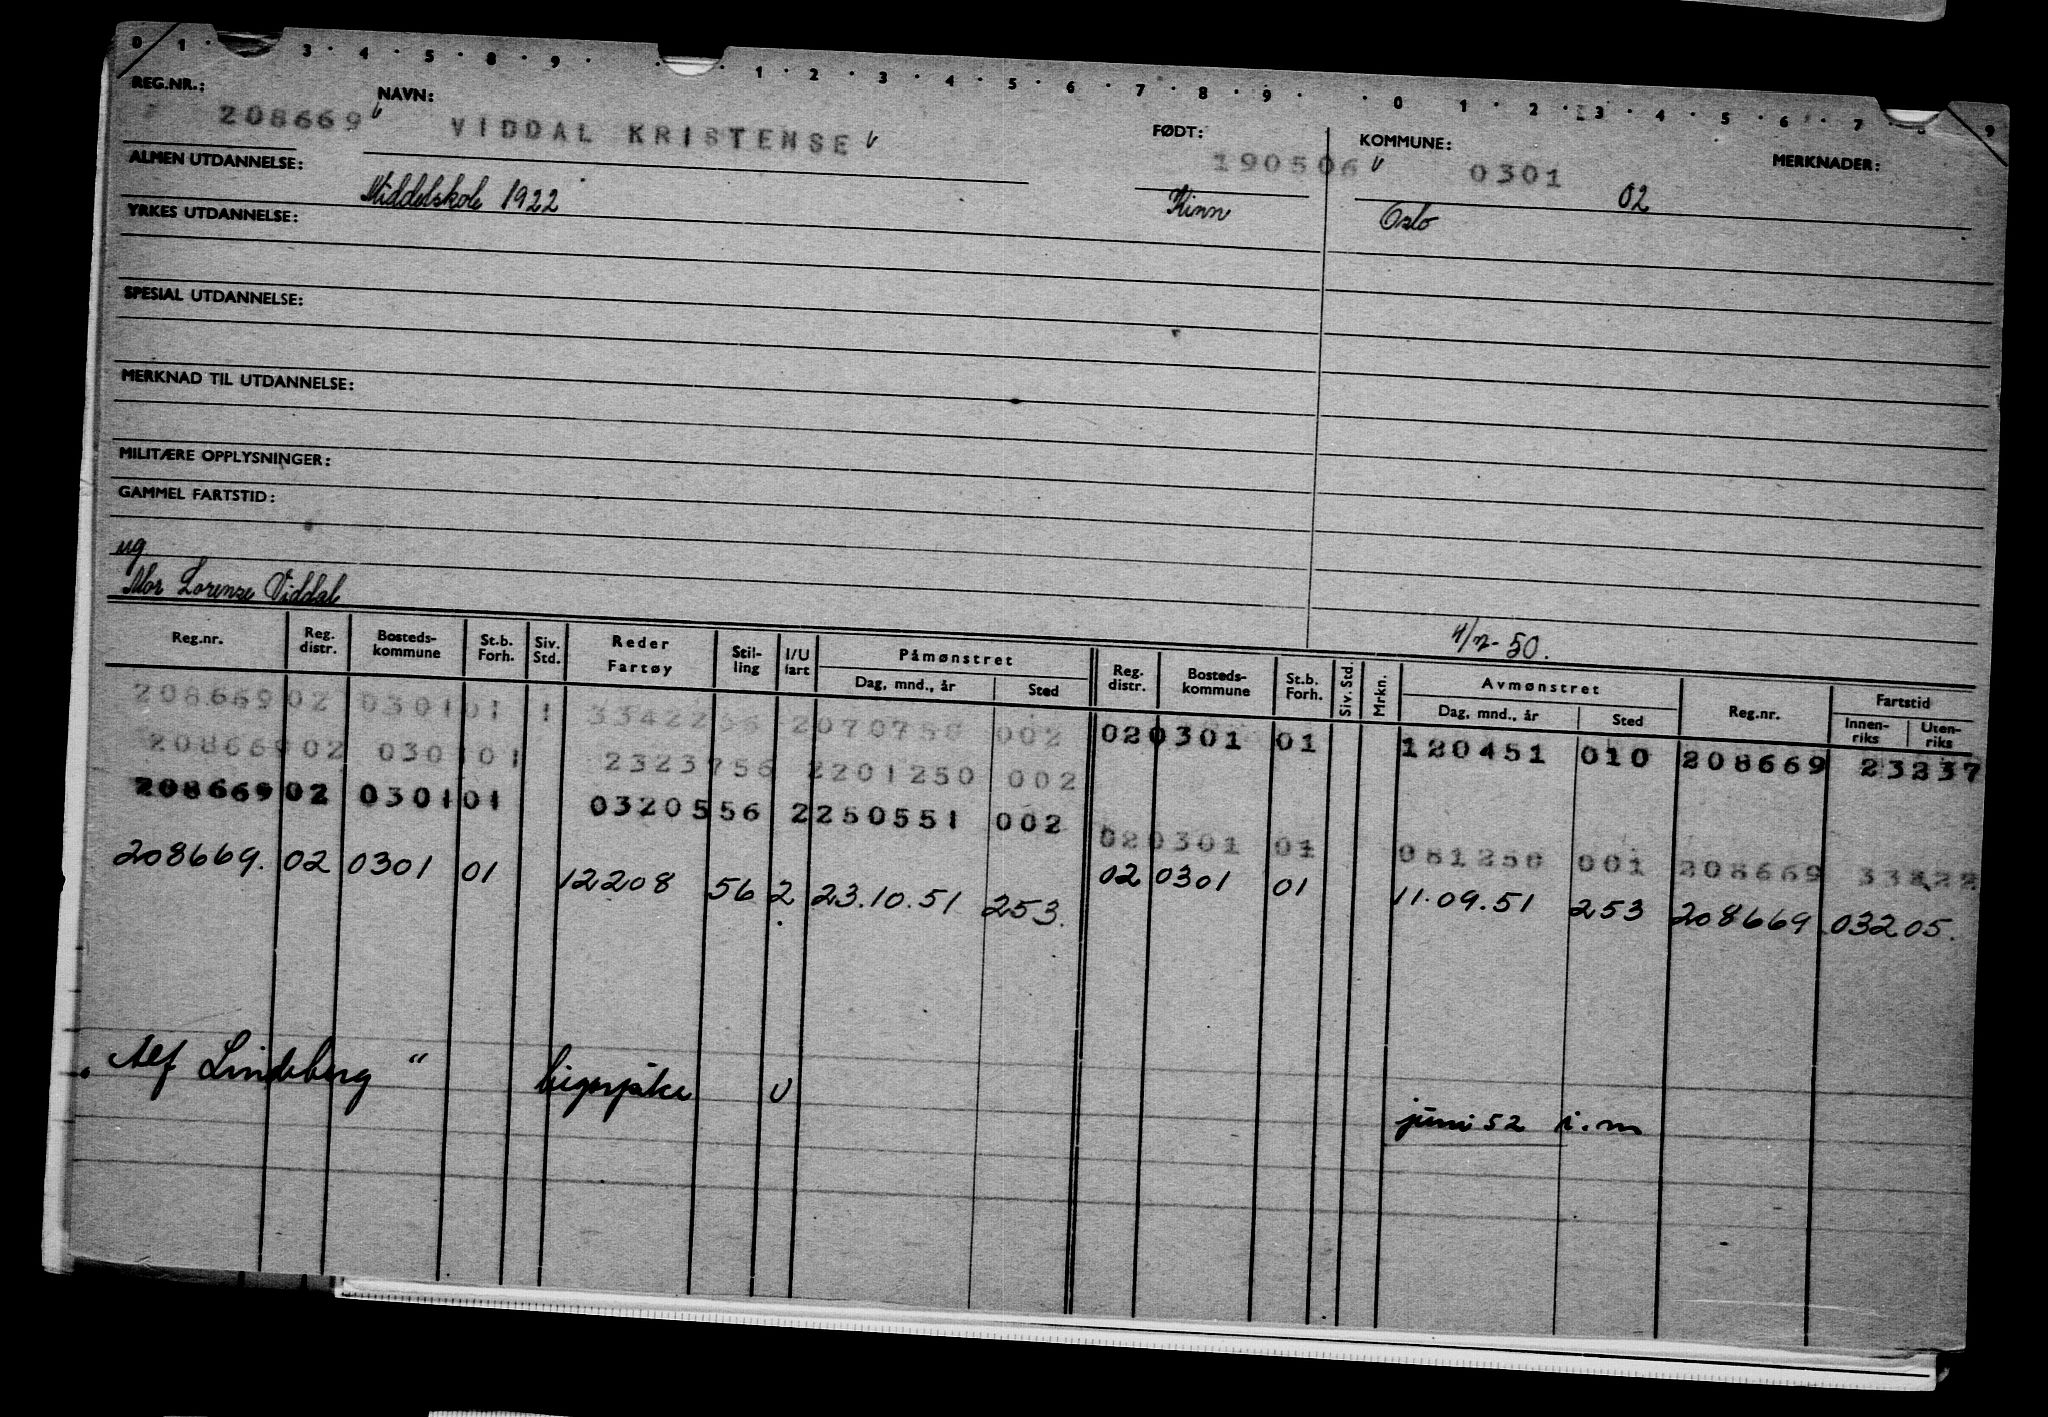 0 1 · 3 · 4 · 5 · 8 · 9 · · 1 · 2 · 3 · 4 · 5 · 6 · 7 · 8 · 9 · · 0 1 · 2 · 3 · 4 · 5 · 6 · 7 · 9
REG.NR.: NAVN: FØDT: KOMMUNE: MERKNADER:
208669 VIDDAL KRISTENSE 190506 0301 02
ALMEN UTDANNELSE: Middelskole 1922 Kinn Oslo
YRKES UTDANNELSE:
SPESIAL UTDANNELSE:
MERKNAD TIL UTDANNELSE:
MILITÆRE OPPLYSNINGER:
GAMMEL FARTSTID:
ug
Mor Lorenze Viddal
4/7-50.
Reg.nr. Reg. distr. Bosteds-kommune St.b. Forh. Siv. Std. Reder Fartøy Stil-ling I/U fart Påmønstret Dag, mnd., år Sted Reg. distr. Bosteds-kommune St.b. Forh. Siv. Std. Mrkn. Avmønstret Dag, mnd., år Sted Reg.nr. Fartstid Innen-riks Uten-riks
208669 02 0301 01 1 2 070750 002 02 0301 01 120451 010 208669 23237
208669 02 0301 01 23237 56 2 201250 002
208669 02 0301 01 03205 56 2 250551 002
02 0301 01 081250 001 208669
208669. 02 0301 01 12208 56 2 23.10.51 253. 02 0301 01 11.09.51 253 208669 03205.
"Alf Lindeberg" U juni 52 i.m